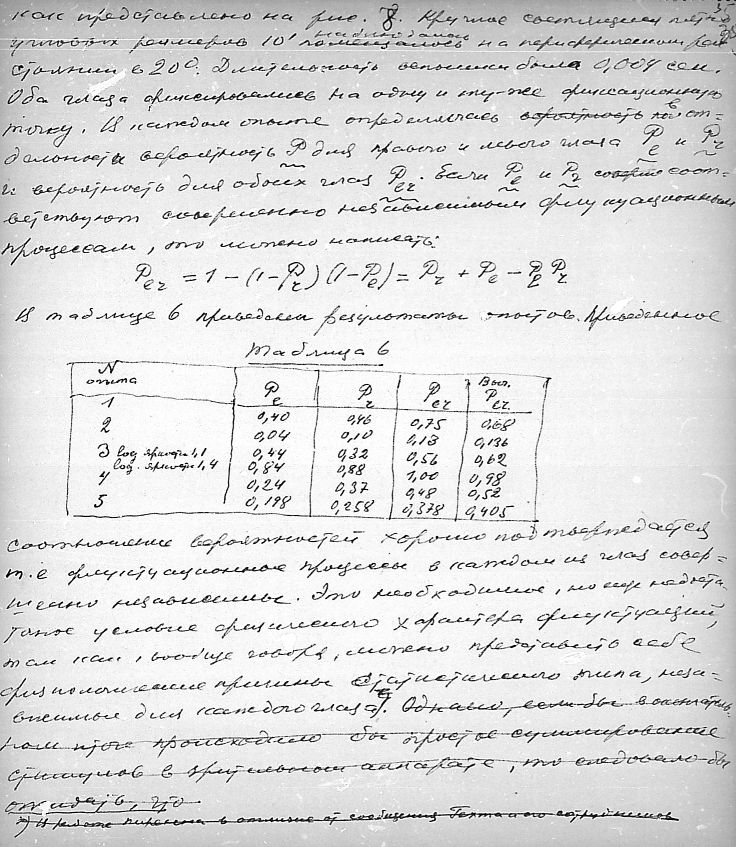 как представлено на рис. 8. Круглое светящееся пятно
угловых размеров 10' наблюдалось на периферическом рас-
стоянии в 20°. Длительность вспышки была 0,004 сек.
Оба глаза фиксировались на одну и ту-же фиксационную
точку. В каждом опыте определялась вероятность в от-
дельности вероятность P для правого и левого глаза Pe и Pr
и вероятность для обоих глаз Per. Если Pe и Pr соот-
ветствуют совершенно независимым флуктуационным
процессам, то можно написать:
Per = 1 – (1–Pr) (1–Pe) = Pr + Pe – Pe Pr
В таблице 6 приведены результаты опытов. Приведенное
Таблица 6
N опыта Pe Pr Per Выч. Per
1 0,40 0,46 0,75 0,68
2 0,04 0,10 0,13 0,136
3 log яркости 1,1 0,44 0,32 0,56 0,62
log. яркости 1,4 0,84 0,88 1,00 0,98
4 0,24 0,37 0,48 0,52
5 0,198 0,258 0,378 0,405
соотношение вероятностей хорошо подтверждается
т.е флуктуационные процессы в каждом из глаз совер-
шенно независимы. Это необходимое, но еще недоста-
точное условие физического характера флуктуаций,
так как, вообще говоря, можно представить себе
физиологические причины статистического типа, неза-
висимые для каждого глаза. Однако, если бы в окончатель-
ном итоге происходило бы простое суммирование
стимулов в зрительном аппарате, то следовало-бы
ожидать, что
*) В работе Пирена в отличие от сообщения Гехта и его сотрудников